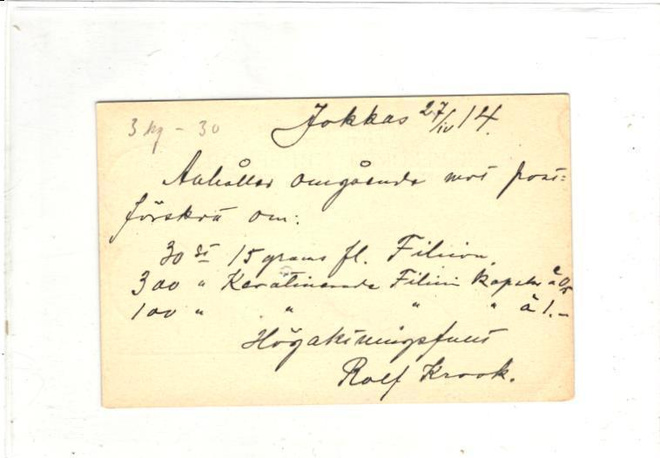 3 kg - 30
Jokkas 27/IV 14.
Anhåller omgående mot post=
förskott om:
30 st 15 grams fl. Filicin.
300 " Keratinerade Filicin kapslar à
100 " " " " à 1.-
Högaktningsfullt
Rolf Krook.